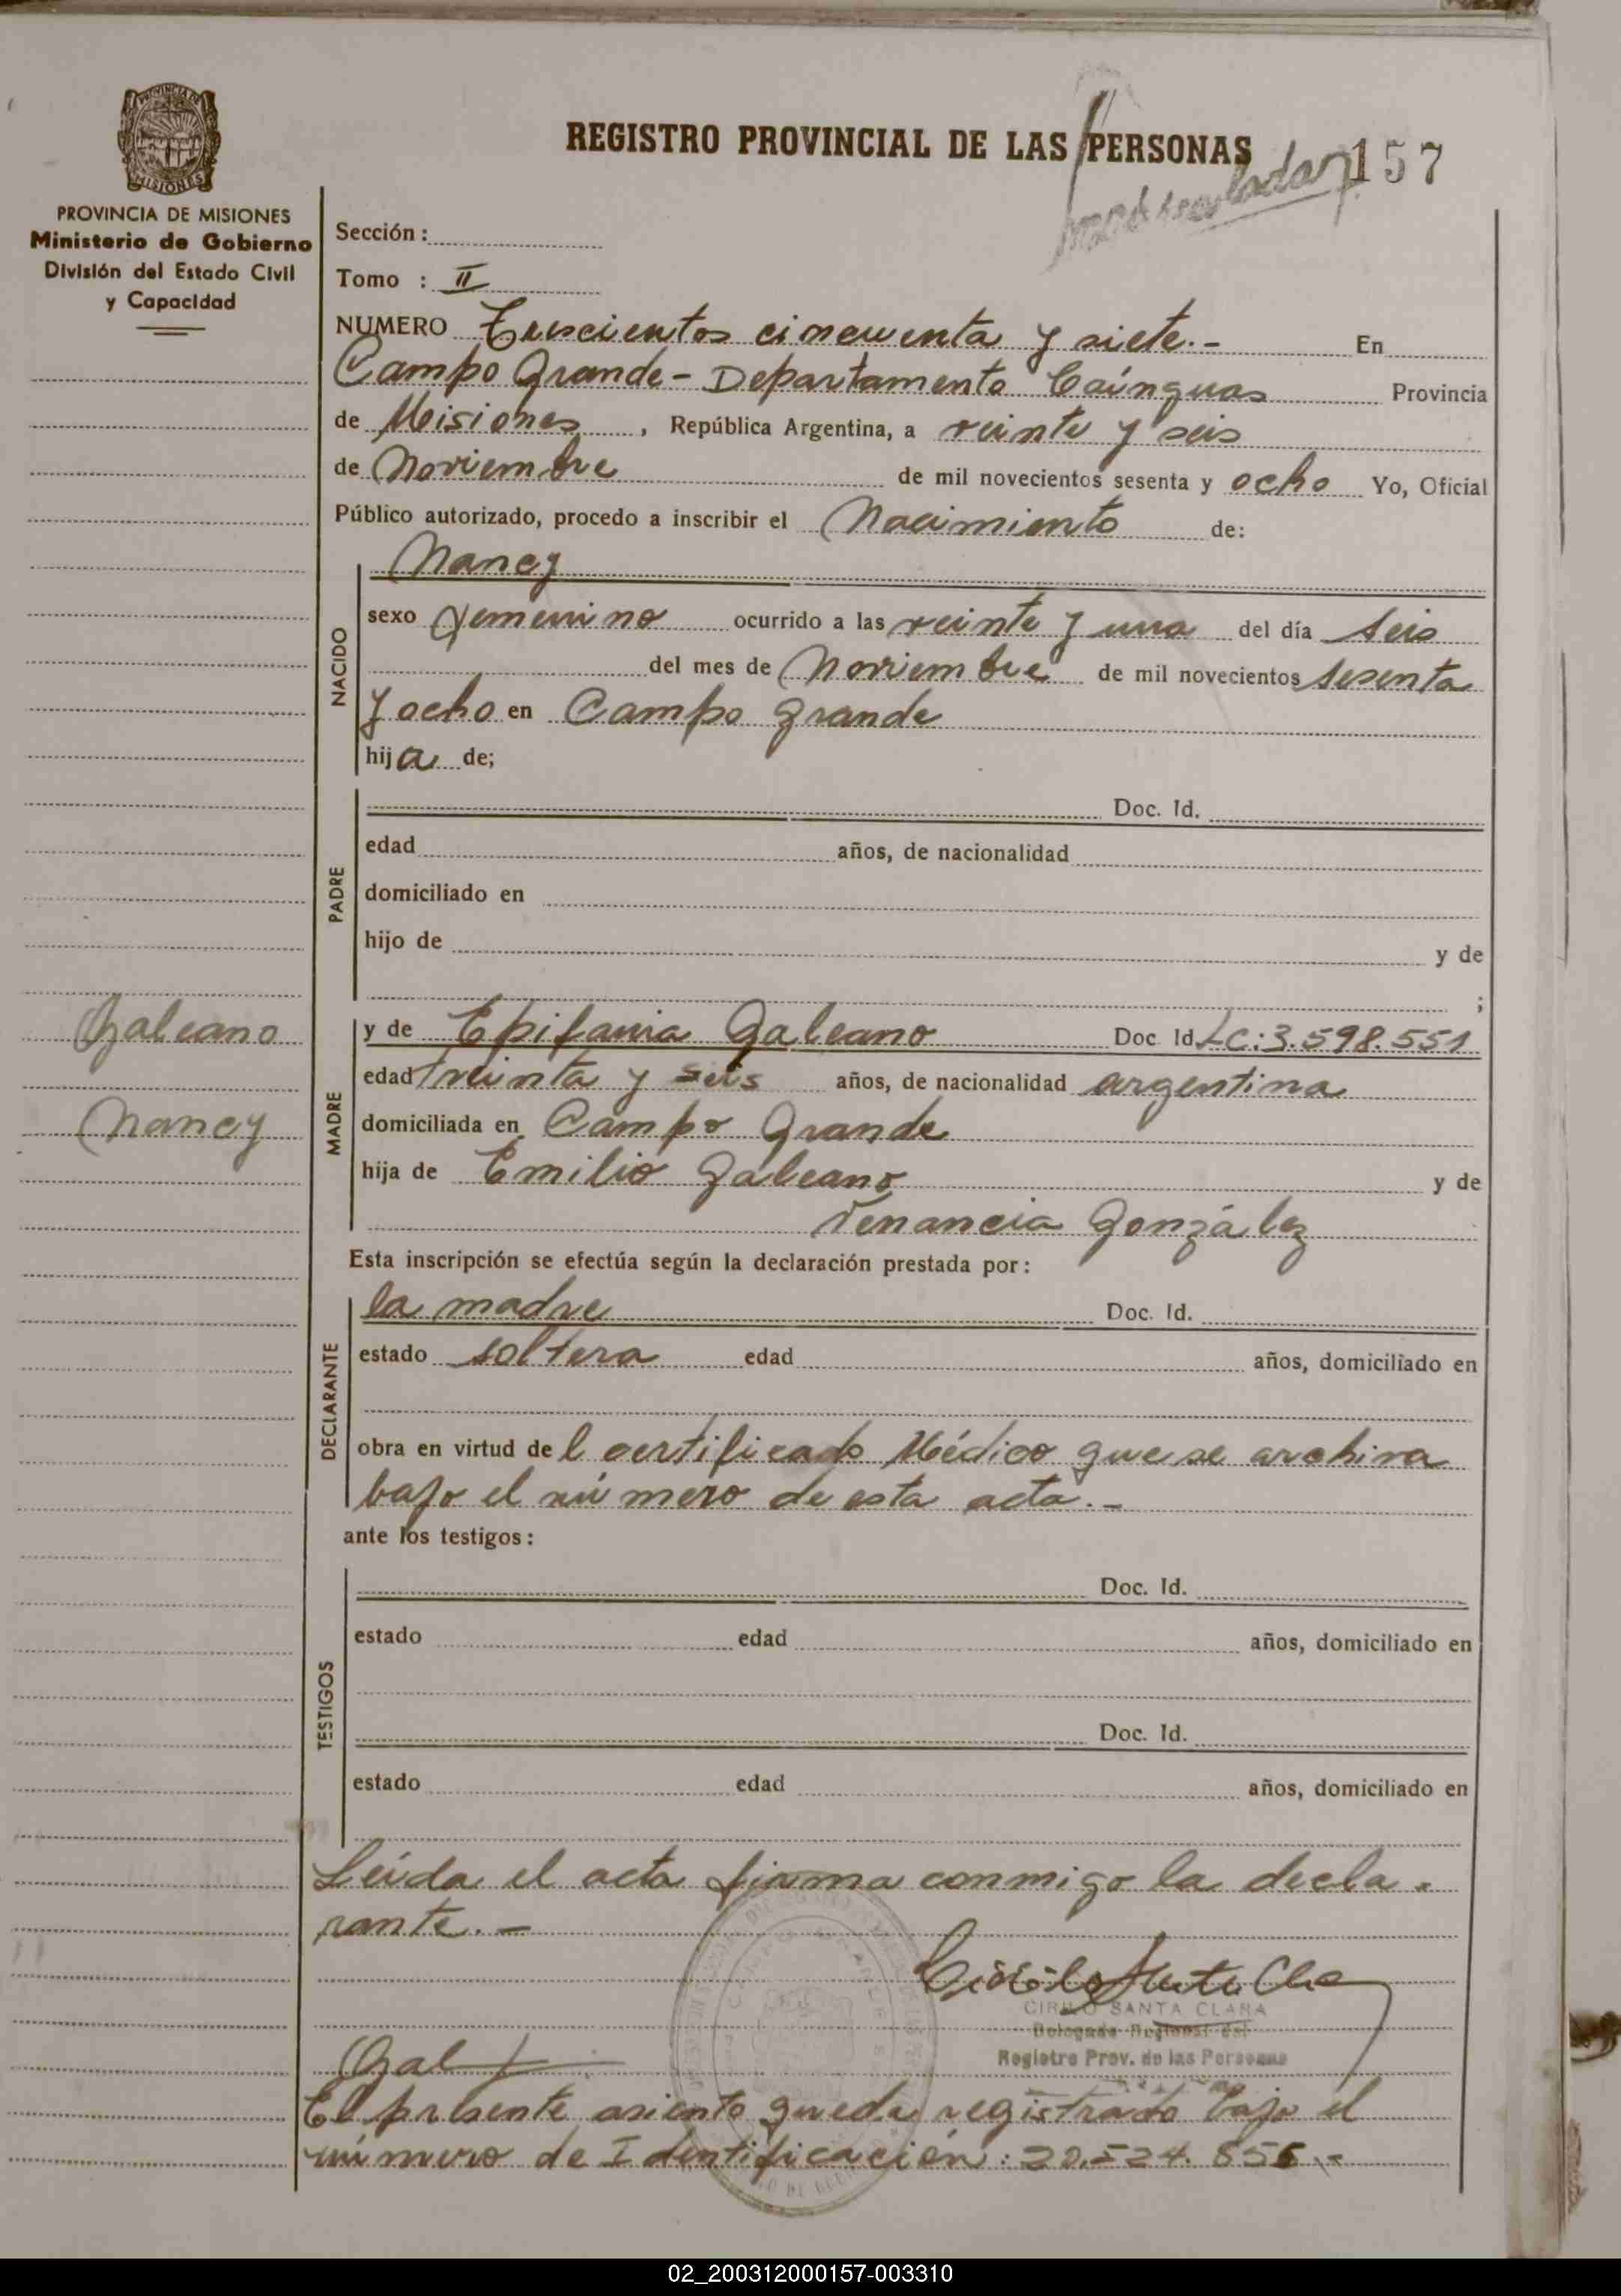 REGISTRO PROVINCIAL DE LAS PERSONAS
157
PROVINCIA DE MISIONES
MISIONES
PROVINCIA DE MISIONES
Ministerio de Gobierno
División del Estado Civil
y Capacidad
Sección :
Tomo : II
NUMERO Trescientos cincuenta y siete.- En
Campo Grande - Departamento Caínguas Provincia
de Misiones , República Argentina, a veinte y seis
de Noviembre de mil novecientos sesenta y ocho Yo, Oficial
Público autorizado, procedo a inscribir el Nacimiento de:
NACIDO
Nancy
sexo femenino ocurrido a las veinte y una del día seis
del mes de Noviembre de mil novecientos sesenta
y ocho en Campo grande
hija de;
PADRE
Doc. Id.
edad años, de nacionalidad
domiciliado en
hijo de y de
;
Galeano
Nancy
MADRE
y de Epifania Galeano Doc Id LC:3.598.551
edad treinta y seis años, de nacionalidad argentina
domiciliada en Campo Grande
hija de Emilio Galeano y de
Venancia González
Esta inscripción se efectúa según la declaración prestada por:
DECLARANTE
la madre Doc. Id.
estado soltera edad años, domiciliado en
obra en virtud del certificado Médico que se archiva
bajo el número de esta acta.-
ante los testigos:
TESTIGOS
Doc. Id.
estado edad años, domiciliado en
Doc. Id.
estado edad años, domiciliado en
Leída el acta firma conmigo la decla-
rante.-
CIRILO SANTA CLARA
Delegado Regional del
Registro Prov. de las Personas
El presente asiento queda registrado bajo el
número de Identificación: 20.524.
02_200312000157-003310